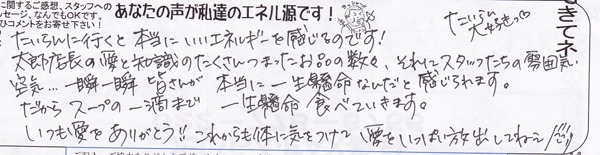 に関するご感想、スタッフへの
ッセージ、なんでもOKです。
ひコメントをお寄せ下さい!
あなたの声が私達のエネル源です!
たいらん
大好きっ♡
きてネ
たいらんに行くと本当にいいエネルギーを感じるのです!!
太郎店長の愛と知識のたくさんつまったお品の数々、それにスタッフたちの雰囲気
空気… 一瞬一瞬 皆さんが 本当に一生懸命なんだと感じられます。
だから スープの一滴まで 一生懸命 食べていきます。
いつも愛をありがとう!! これからも体に気をつけて 愛をいっぱい放出してねェ